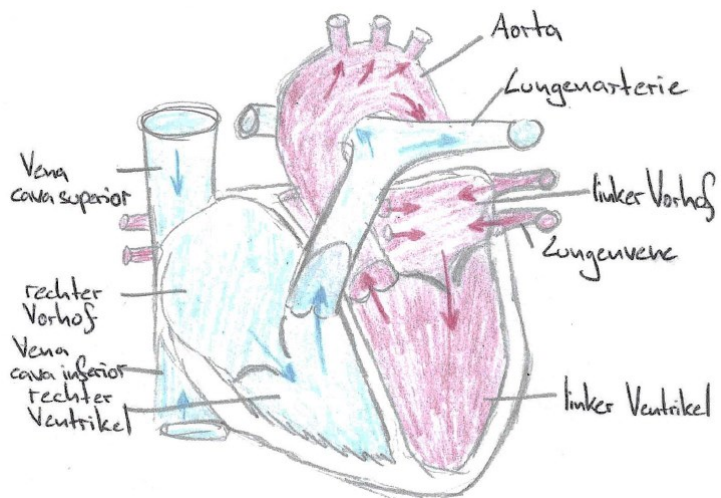 Aorta
Lungenarterie
Vena
cava superior
linker Vorhof
Lungenvene
rechter
Vorhof
Vena
cava inferior
rechter
Ventrikel
linker Ventrikel